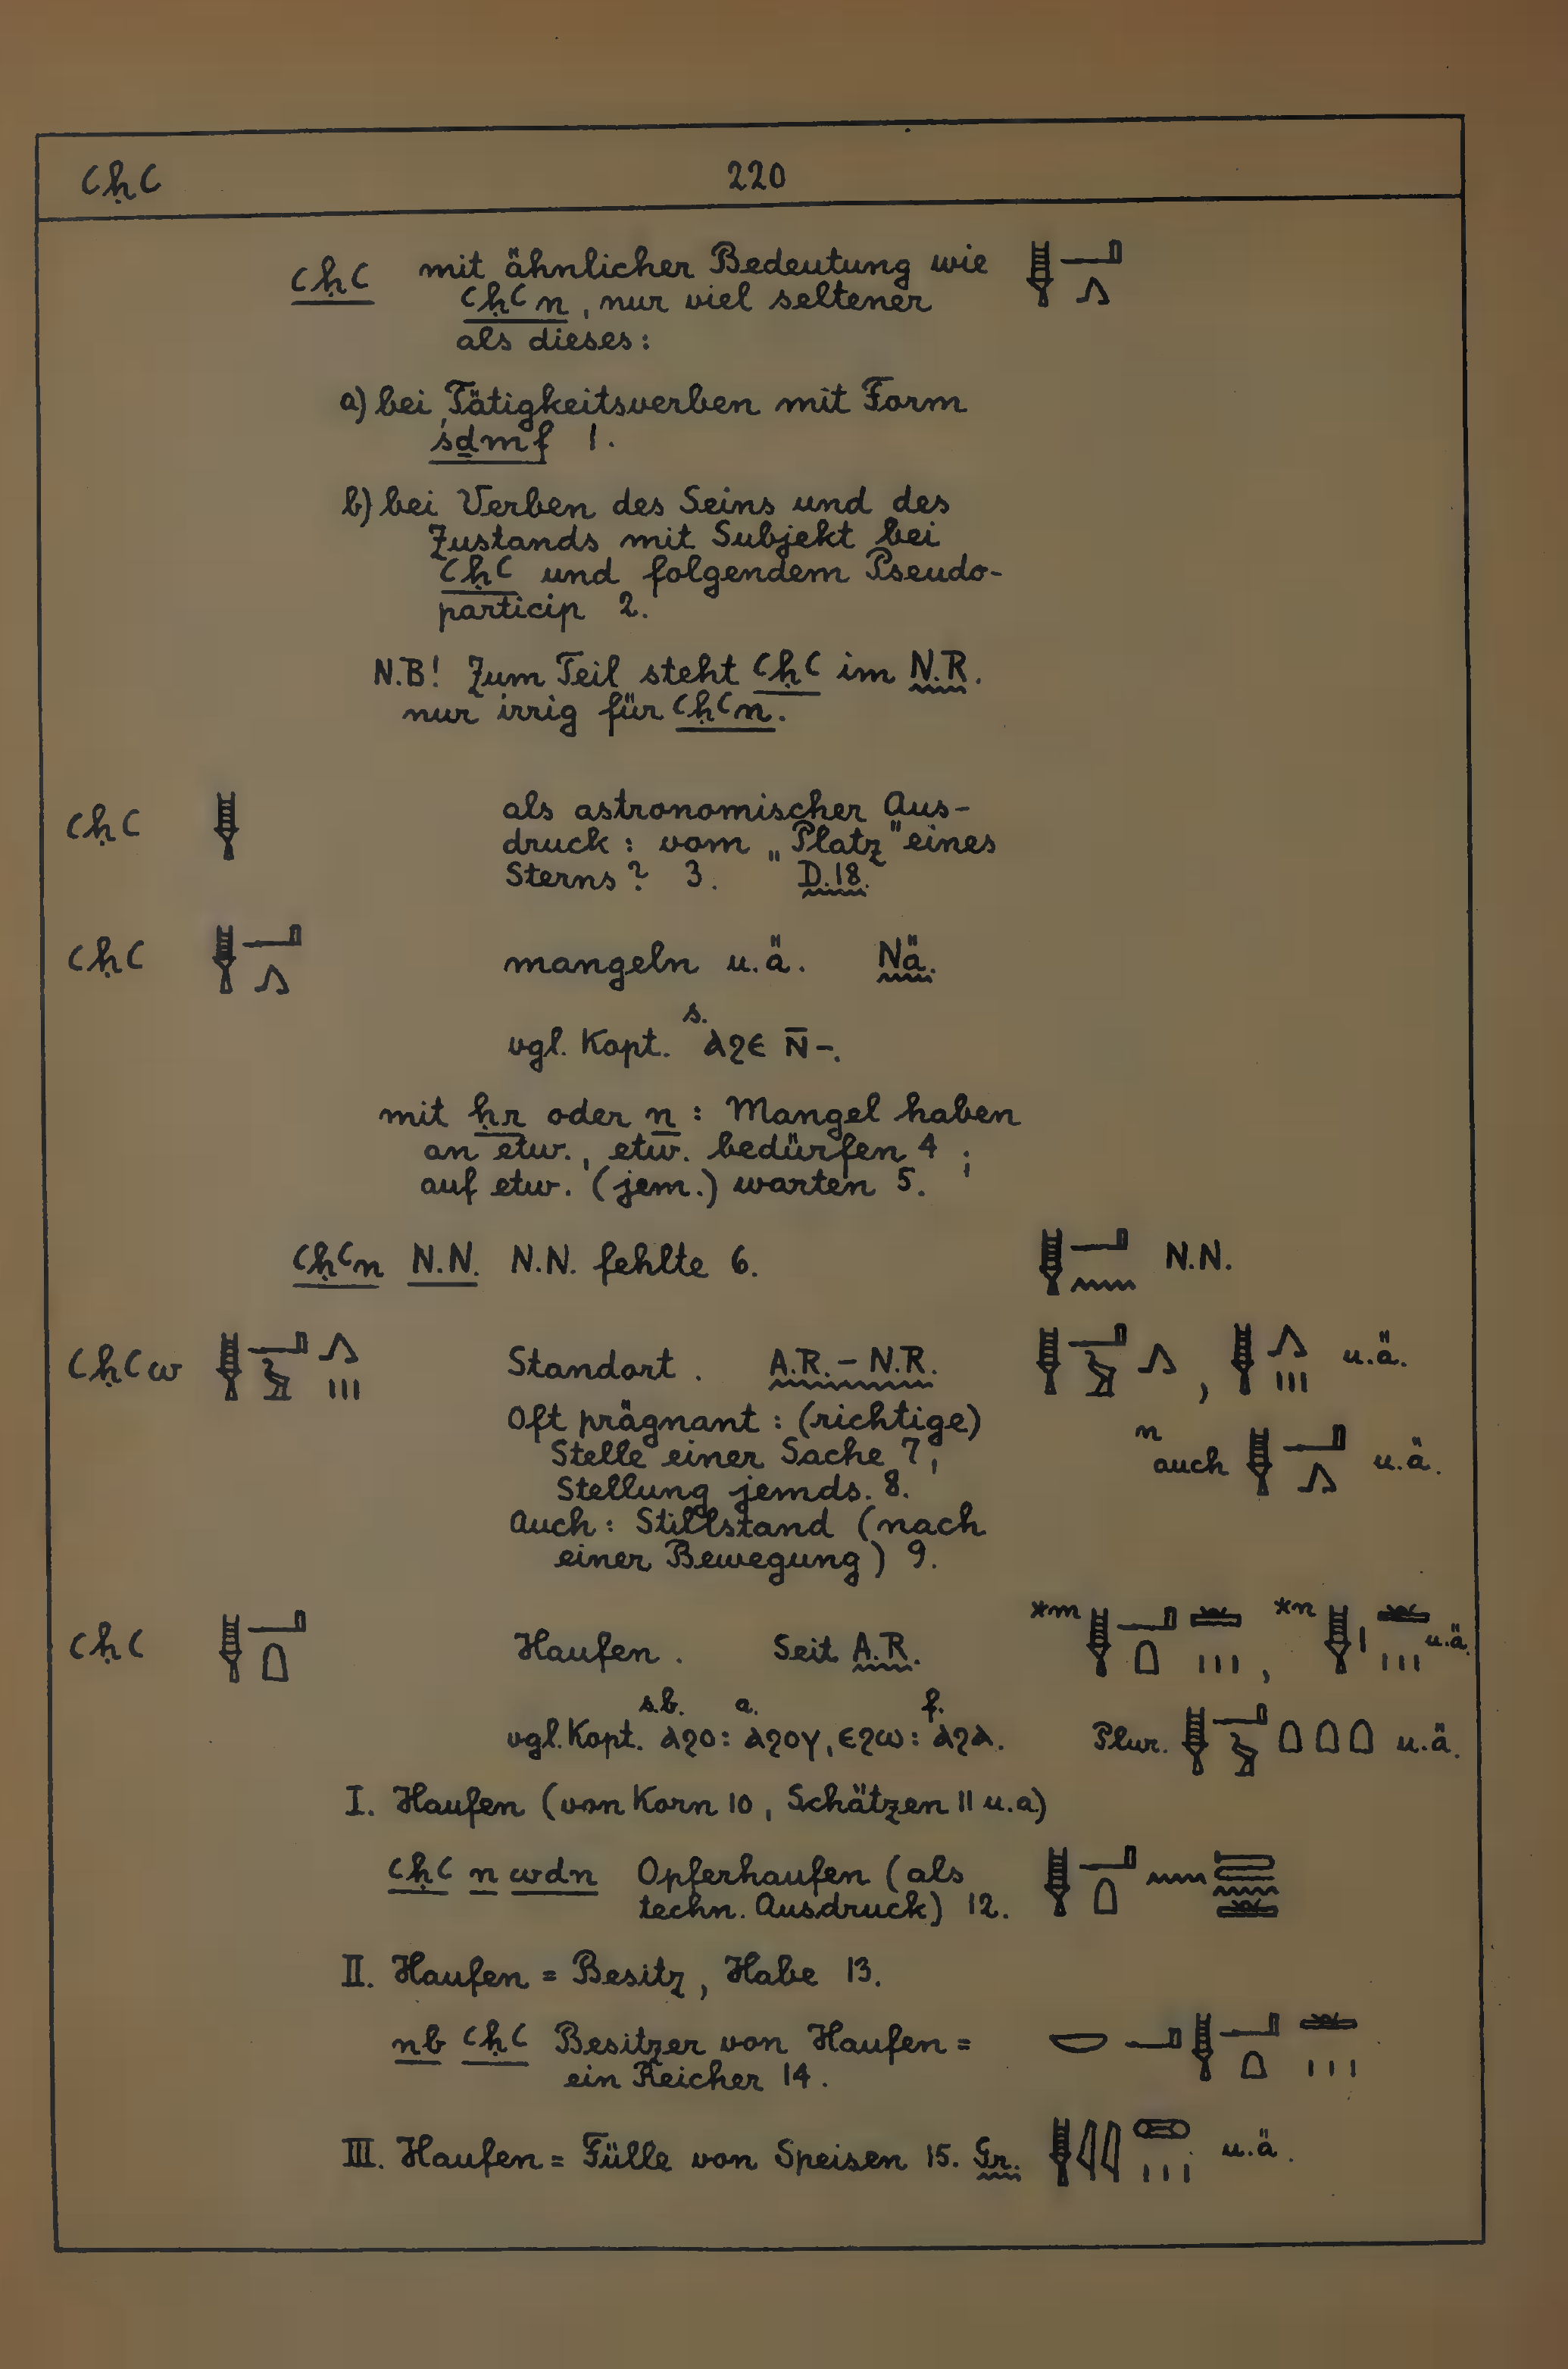 ꜥḥꜥ 220
ꜥḥꜥ mit ähnlicher Bedeutung wie
ꜥḥꜥ n, nur viel seltener
als dieses:
a) bei Tätigkeitsverben mit Form
śḏmf 1.
b) bei Verben des Seins und des
Zustands mit Subjekt bei
ꜥḥꜥ und folgendem Pseudo-
particip 2.
N.B! Zum Teil steht ꜥḥꜥ im N.R.
nur irrig für ꜥḥꜥn.
ꜥḥꜥ als astronomischer Aus-
druck: vom „Platz" eines
Sterns? 3. D.18.
ꜥḥꜥ mangeln u.ä. Nä.
s.
vgl. Kopt. ⲁϩⲉ ⲛ̄-.
mit ḥr oder n: Mangel haben
an etw., etw. bedürfen 4;
auf etw. (jem.) warten 5.
ꜥḥꜥn N.N. N.N. fehlte 6. N.N.
ꜥḥꜥw Standort. A.R.-N.R. , u.ä.
Oft prägnant: (richtige)
Stelle einer Sache 7, n auch u.ä.
Stellung jemds. 8.
Auch: Stillstand (nach
einer Bewegung) 9.
ꜥḥꜥ Haufen. Seit A.R. *m , *n u.ä.
s.b. a. f.
vgl. Kopt. ⲁϩⲟ: ⲁϩⲟⲩ, ⲉϩⲱ: ⲁϩⲁ. Plur. u.ä.
I. Haufen (von Korn 10, Schätzen 11 u.a.)
ꜥḥꜥ n wdn Opferhaufen (als
techn. Ausdruck) 12.
II. Haufen = Besitz, Habe 13.
nb ꜥḥꜥ Besitzer von Haufen =
ein Reicher 14.
III. Haufen = Fülle von Speisen 15. Gr. u.ä.